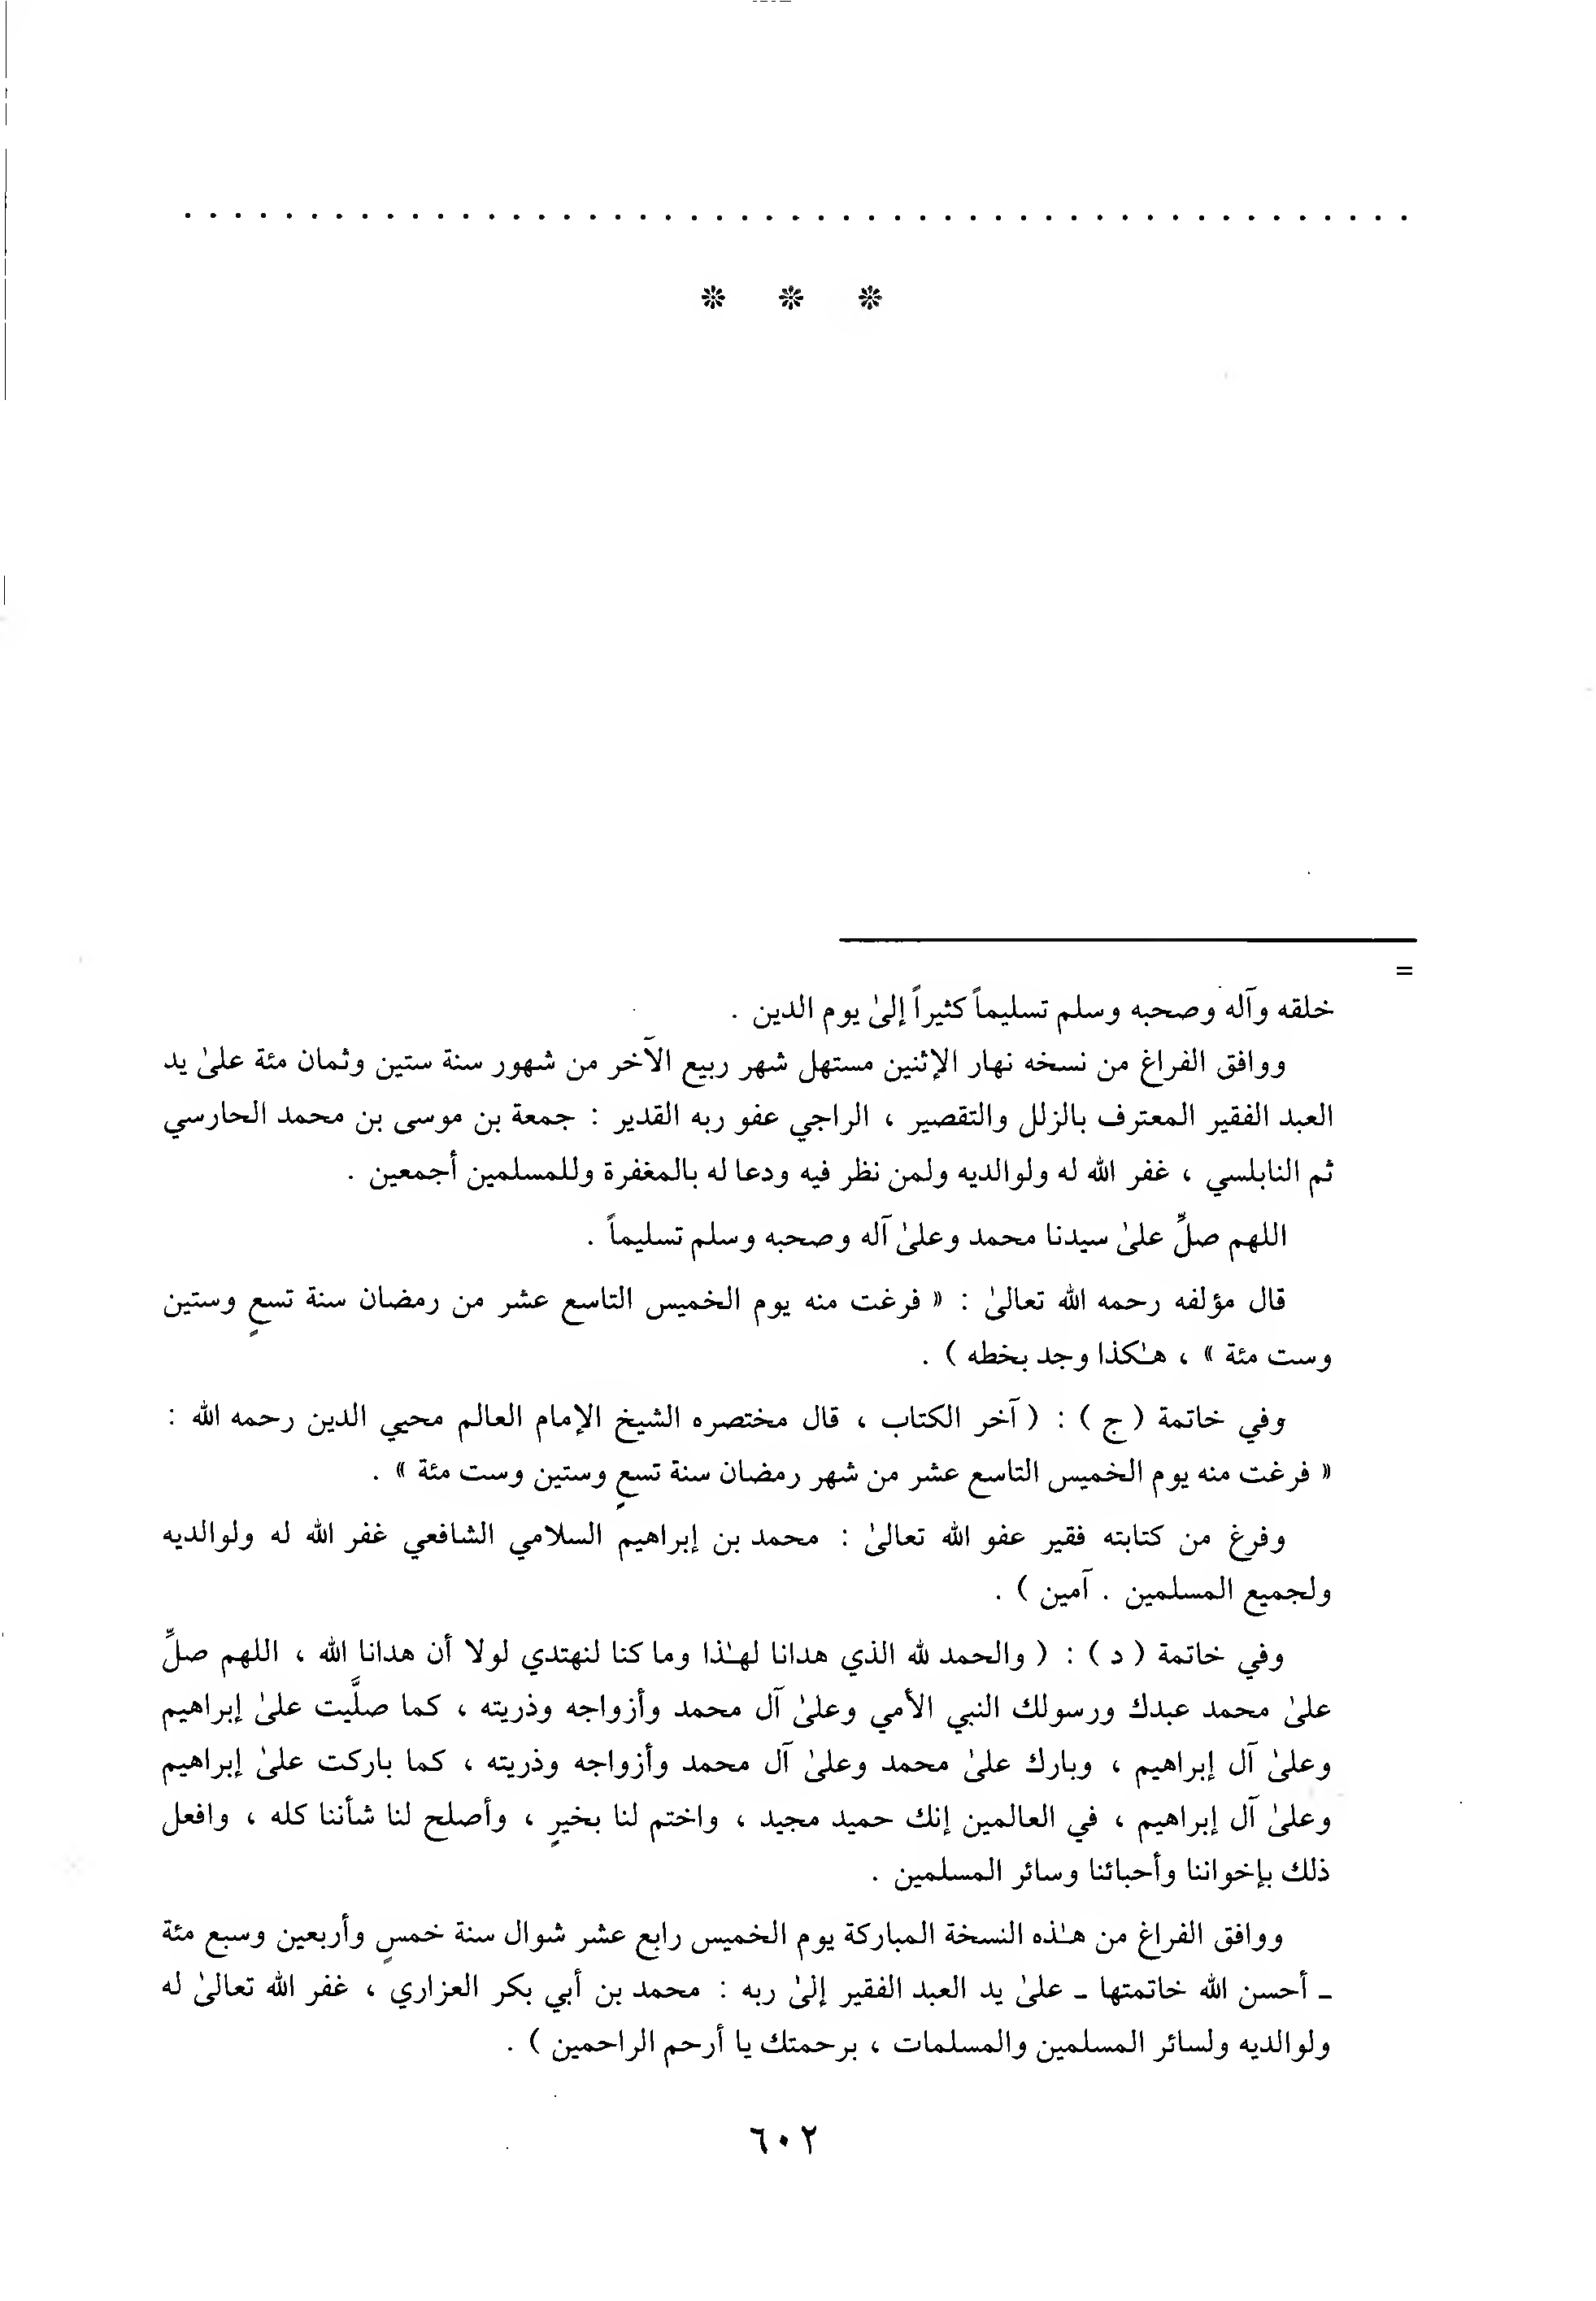 . . . . . . . . . . . . . . . . . . . . . . . . . . . . . . . . . . . . . . . . . . . . . . . . .
* * *
=
خلقه وآله وصحبه وسلم تسليماً كثيراً إلىٰ يوم الدين .
ووافق الفراغ من نسخه نهار الإثنين مستهل شهر ربيع الآخر من شهور سنة ستين وثمان مئة علىٰ يد
العبد الفقير المعترف بالزلل والتقصير ، الراجي عفو ربه القدير : جمعة بن موسى بن محمد الحارسي
ثم النابلسي ، غفر الله له ولوالديه ولمن نظر فيه ودعا له بالمغفرة وللمسلمين أجمعين .
اللهم صلِّ علىٰ سيدنا محمد وعلىٰ آله وصحبه وسلم تسليماً .
قال مؤلفه رحمه الله تعالىٰ : « فرغت منه يوم الخميس التاسع عشر من رمضان سنة تسعٍ وستين
وست مئة » ، هـٰكذا وجد بخطه ) .
وفي خاتمة ( ج ) : ( آخر الكتاب ، قال مختصره الشيخ الإمام العالم محيي الدين رحمه الله :
« فرغت منه يوم الخميس التاسع عشر من شهر رمضان سنة تسعٍ وستين وست مئة » .
وفرغ من كتابته فقير عفو الله تعالىٰ : محمد بن إبراهيم السلامي الشافعي غفر الله له ولوالديه
ولجميع المسلمين . آمين ) .
وفي خاتمة ( د ) : ( والحمد لله الذي هدانا لهـٰذا وما كنا لنهتدي لولا أن هدانا الله ، اللهم صلِّ
علىٰ محمد عبدك ورسولك النبي الأمي وعلىٰ آل محمد وأزواجه وذريته ، كما صلَّيت علىٰ إبراهيم
وعلىٰ آل إبراهيم ، وبارك علىٰ محمد وعلىٰ آل محمد وأزواجه وذريته ، كما باركت علىٰ إبراهيم
وعلىٰ آل إبراهيم ، في العالمين إنك حميد مجيد ، واختم لنا بخيرٍ ، وأصلح لنا شأننا كله ، وافعل
ذلك بإخواننا وأحبائنا وسائر المسلمين .
ووافق الفراغ من هـٰذه النسخة المباركة يوم الخميس رابع عشر شوال سنة خمسٍ وأربعين وسبع مئة
ـ أحسن الله خاتمتها ـ علىٰ يد العبد الفقير إلىٰ ربه : محمد بن أبي بكر العزاري ، غفر الله تعالىٰ له
ولوالديه ولسائر المسلمين والمسلمات ، برحمتك يا أرحم الراحمين ) .
٦٠٢